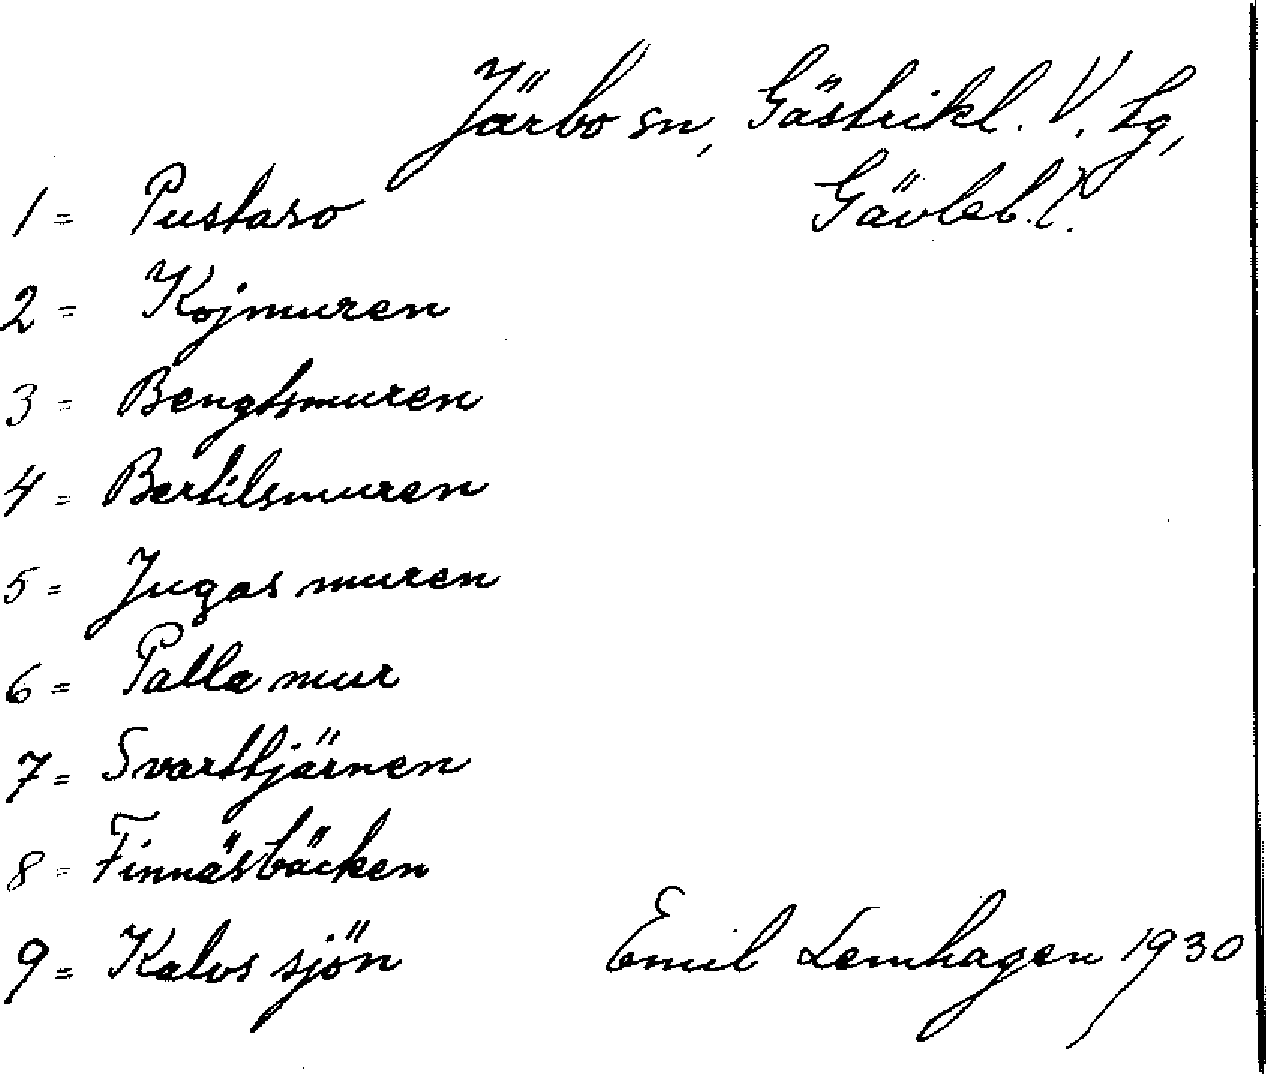 Järbo sn, Gästrikl. V. Lg,
Gävleb. l.
1 = Pustaso
2 = Kojmuren
3 = Bengtsmuren
4 = Bertilsmuren
5 = Jugas muren
6 = Palla mur
7 = Svarttjärnen
8 = Finnäsbäcken
9 = Kalvs sjön
Emil Lernhagen 1930